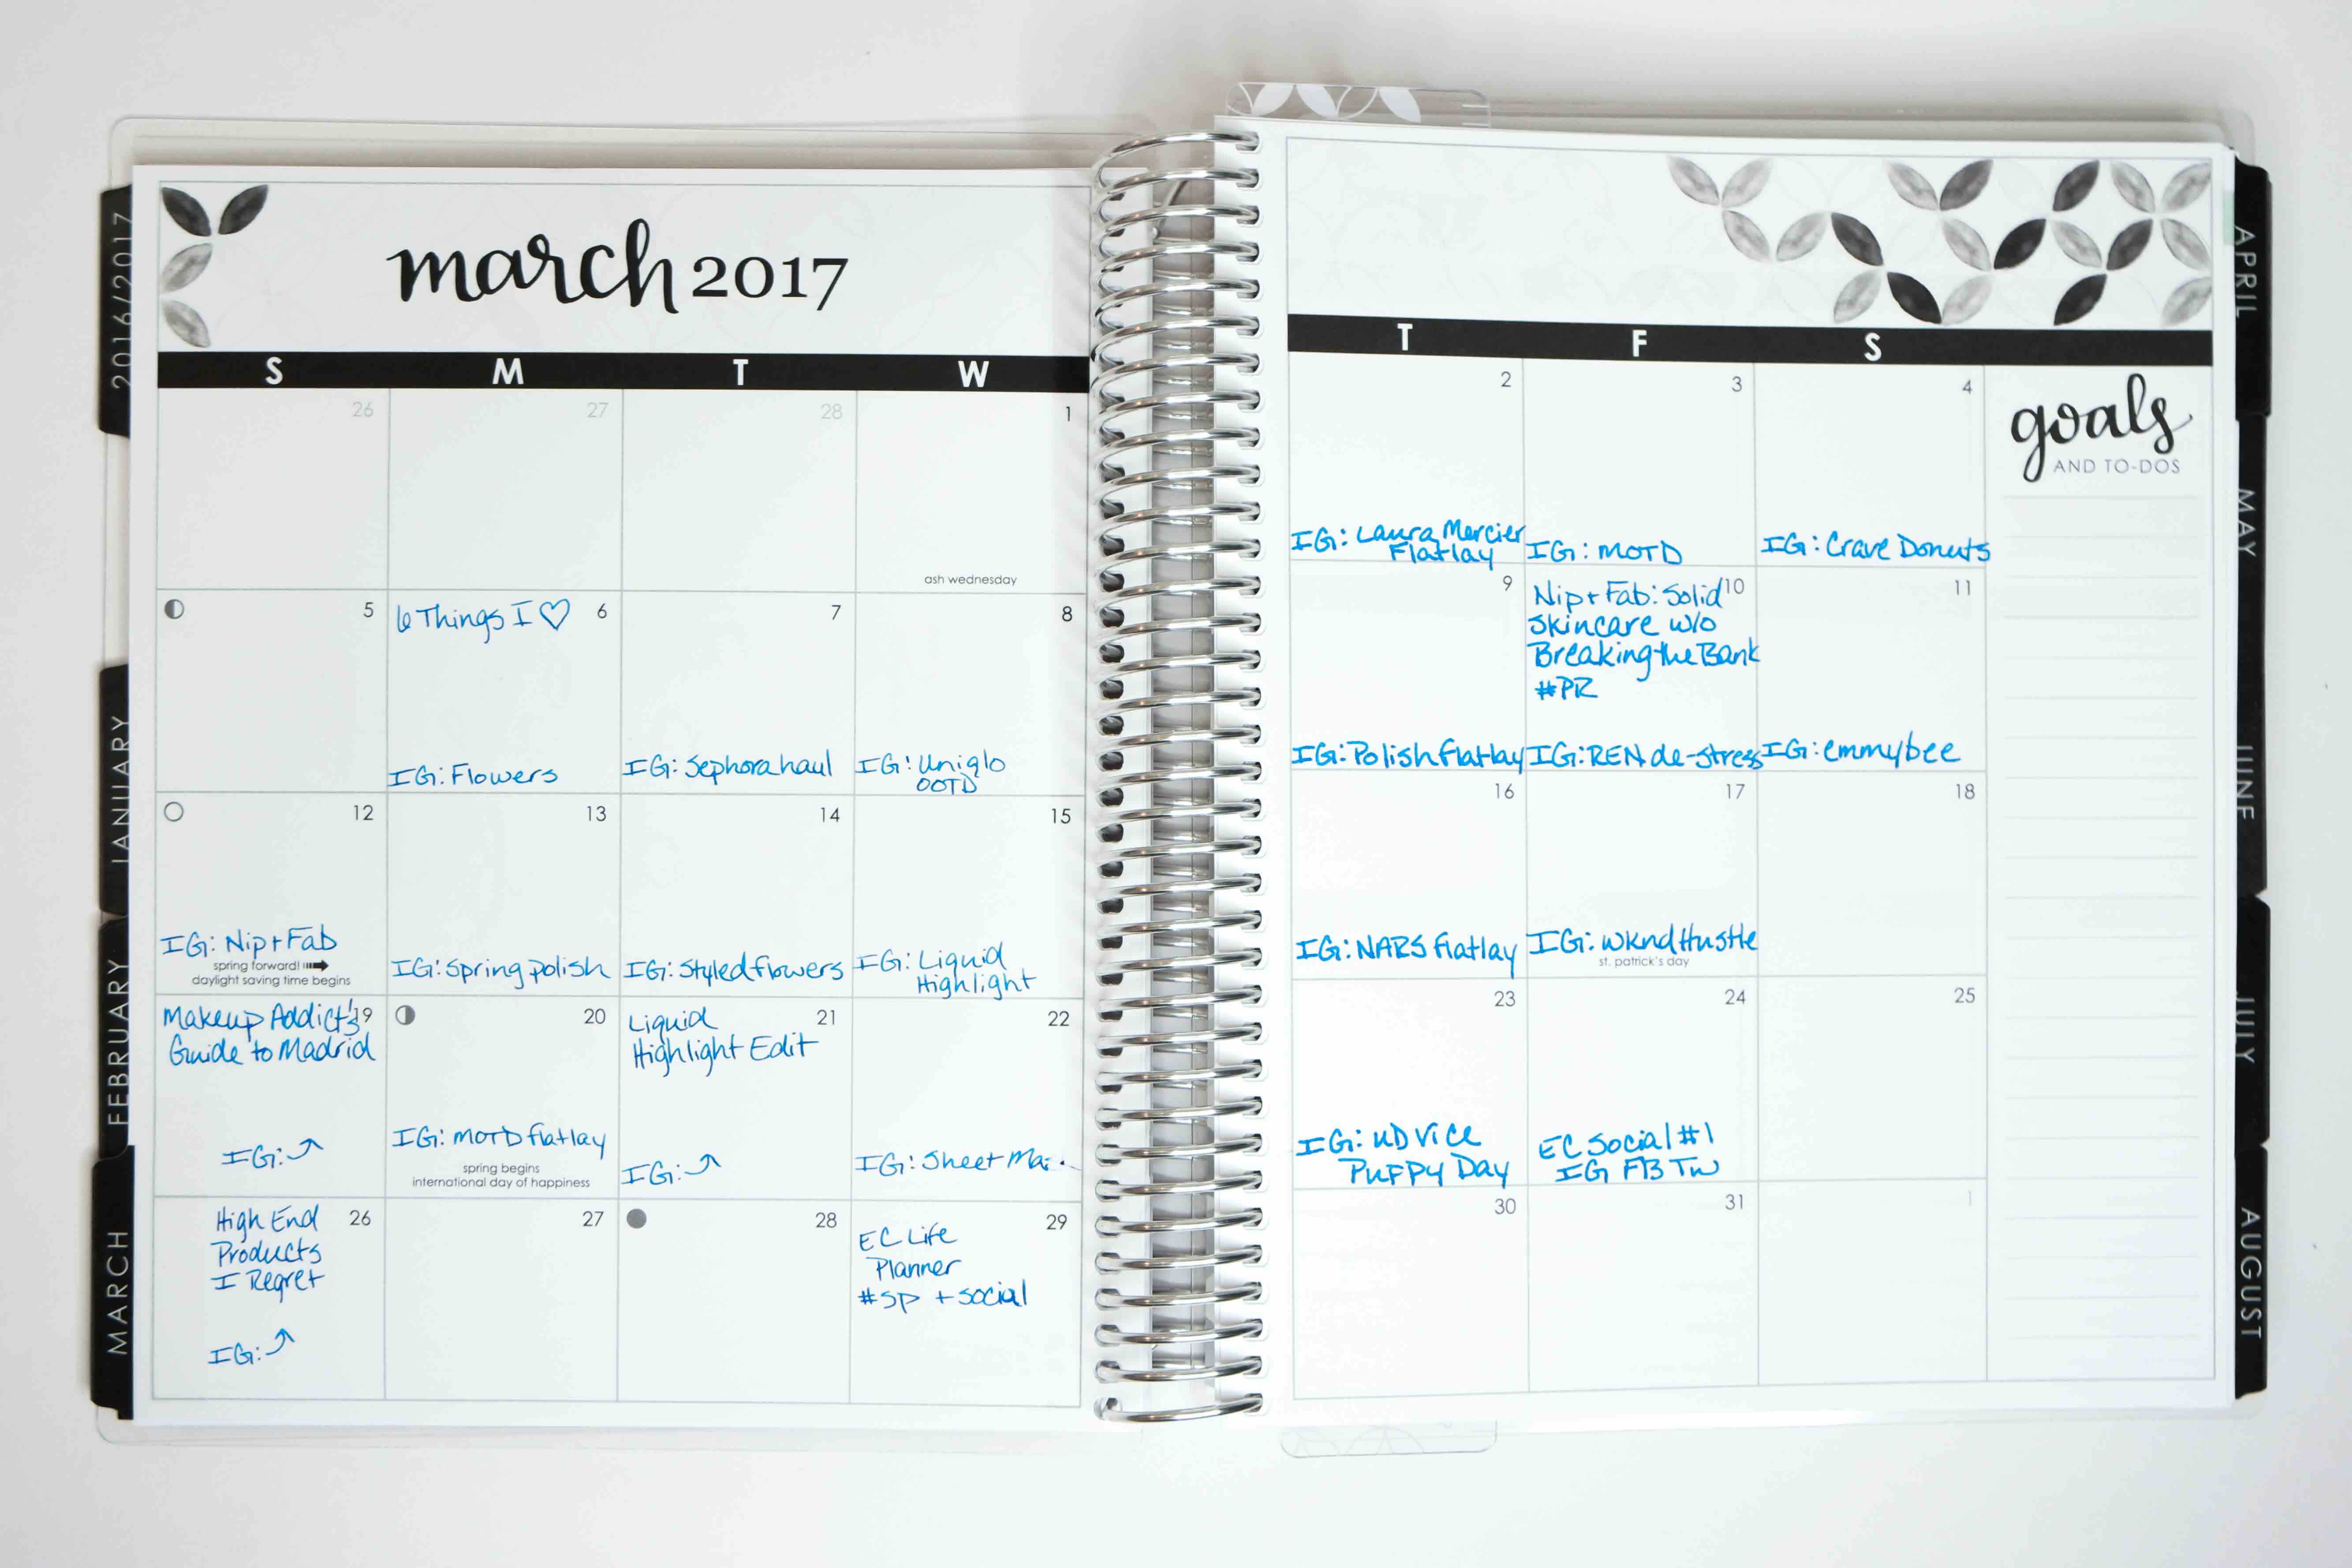 march 2017
S M T W
T F S
goals
AND TO-DOS
26 27 28 1
ash wednesday
2 3 4
IG: Laura Mercier
Flatlay
IG: MOTD
IG: Crave Donuts
5
6 Things I ♡ 6
7
8
IG: Flowers
IG: Sephora haul
IG: Uniqlo
OOTD
9
Nip+Fab: Solid 10
Skincare w/o
Breaking the Bank
#PR
11
IG: Polish flatlay
IG: REN de-stress
IG: emmybee
12 13 14 15
IG: Nip+Fab
spring forward!
daylight saving time begins
IG: Spring polish
IG: Styled flowers
IG: Liquid
Highlight
16 17 18
IG: NARS flatlay
IG: WkndHustle
st. patrick's day
Makeup Addict's 19
Guide to Madrid
IG: ⤴
20
IG: MOTD flatlay
spring begins
international day of happiness
Liquid 21
Highlight Edit
IG: ⤴
22
IG: Sheet
23 24 25
IG: UD Vice
Puppy Day
EC Social #1
IG FB Tw
High End 26
Products
I Regret
IG: ⤴
27 28
29
EC Life
Planner
#sp + social
30 31 1
2016/2017
JANUARY
FEBRUARY
MARCH
APRIL
MAY
JUNE
JULY
AUGUST